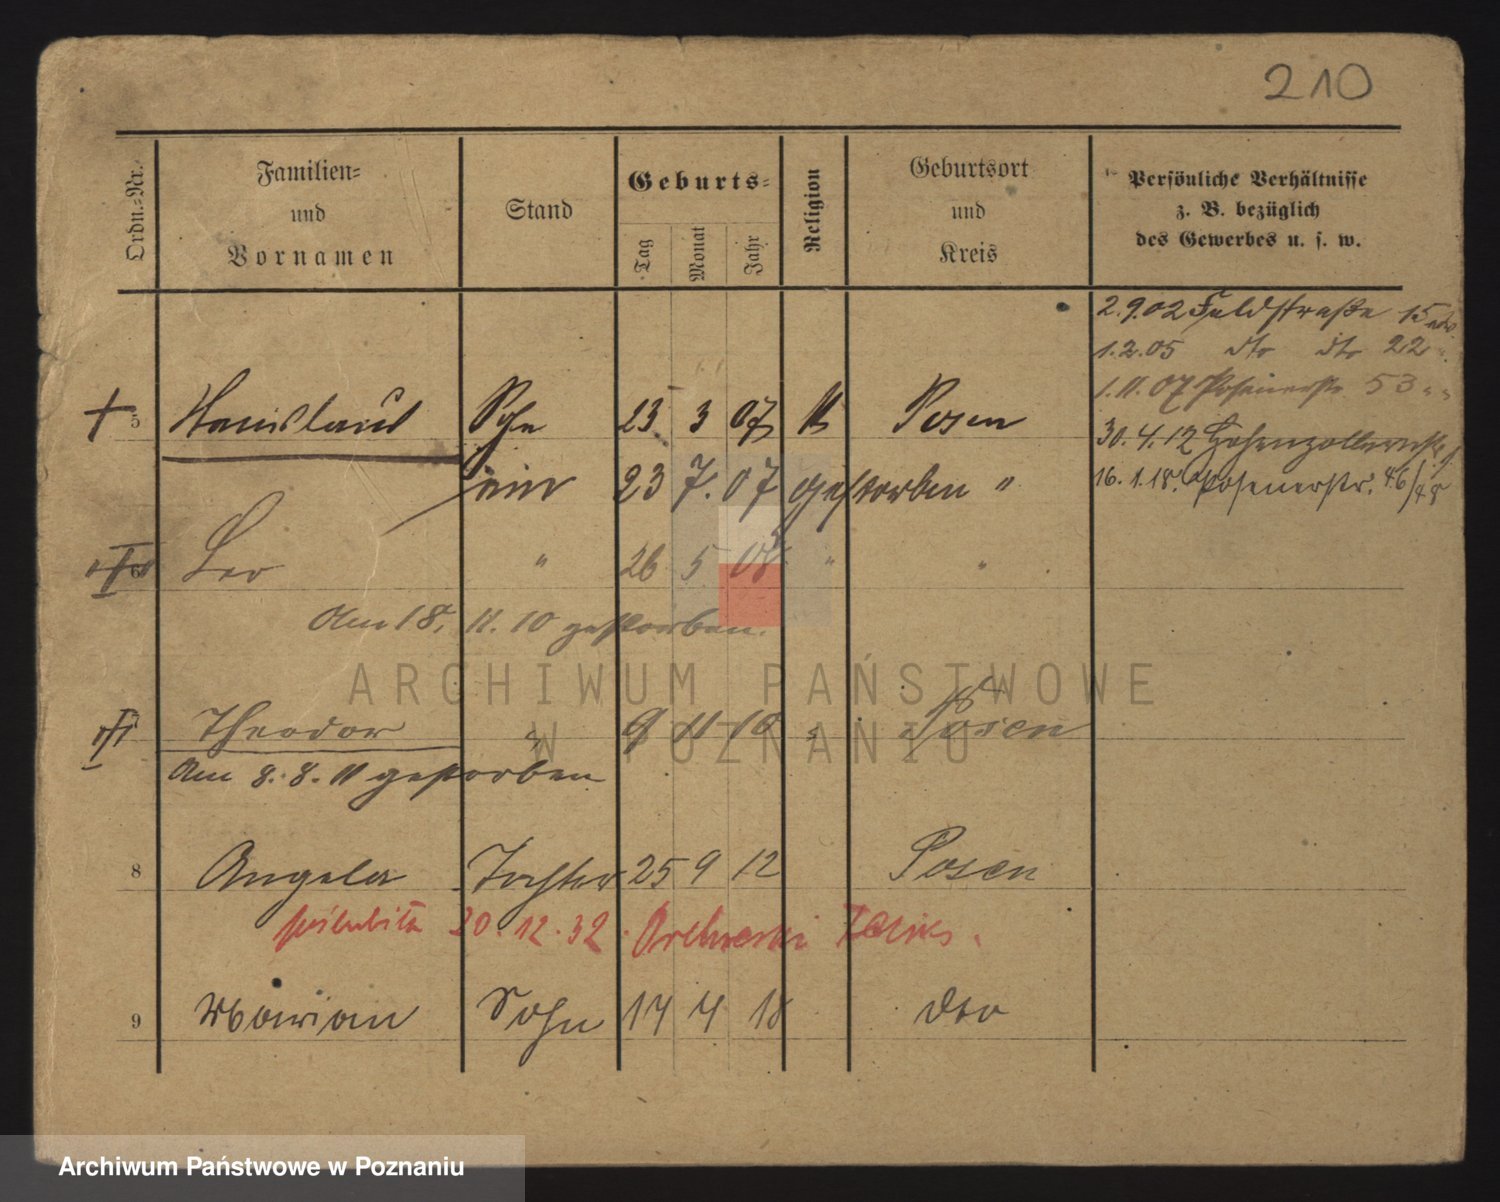 210
Ordn.-Nr.
Familien-
und
Vornamen
Stand
Geburts-
Tag
Monat
Jahr
Religion
Geburtsort
und
Kreis
Persönliche Verhältnisse
z. B. bezüglich
des Gewerbes u. s. w.
2.9.02 Feldstraße 15
1.2.05 dto dto 22 "
1.11.07 Posenerstr. 53 " "
30.4.12 Hohenzollernstr.
16.1.18. Posenerstr. 46/48
5 Stanislaus Sohn 25 3 07 k Posen
23 7. 07 gestorben "
6 Leo " 26 5 08 " "
Am 18. 11. 10 gestorben.
7 Theodor " 9 11 10 " Posen
Am 8. 8. 11 gestorben
8 Angela Tochter 25 9 12 Posen
20. 12. 32.
9 Marian Sohn 14 4 18 dto
ARCHIWUM PAŃSTWOWE
W POZNANIU
Archiwum Państwowe w Poznaniu